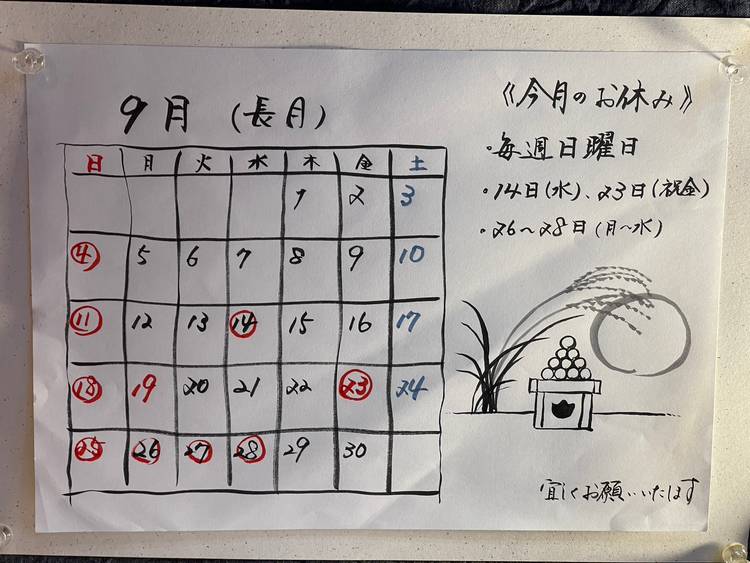 9月（長月）
日 月 火 水 木 金 土
1 2 3
4 5 6 7 8 9 10
11 12 13 14 15 16 17
18 19 20 21 22 23 24
25 26 27 28 29 30
《今月のお休み》
・毎週日曜日
・14日(水)、23日(祝金)
・26〜28日(月〜水)
宜しくお願いいたします